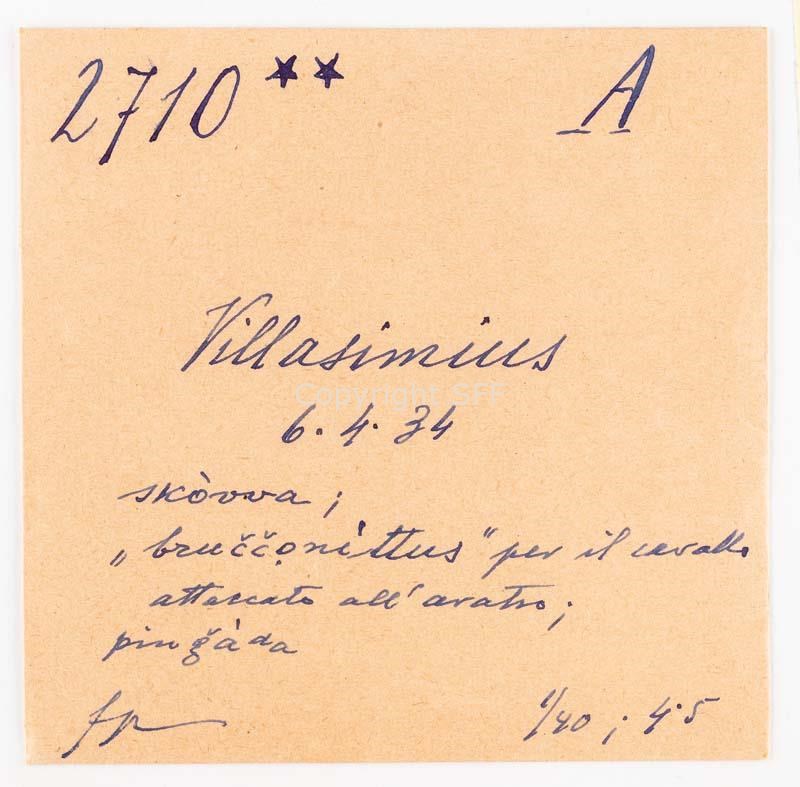 2710 ** A
Villasimius
Copyright SFF
6.4.34
skòvva;
„bruččọnìttus" per il cavallo
attaccato all'aratro;
pinǧàda
1/40; 4·5